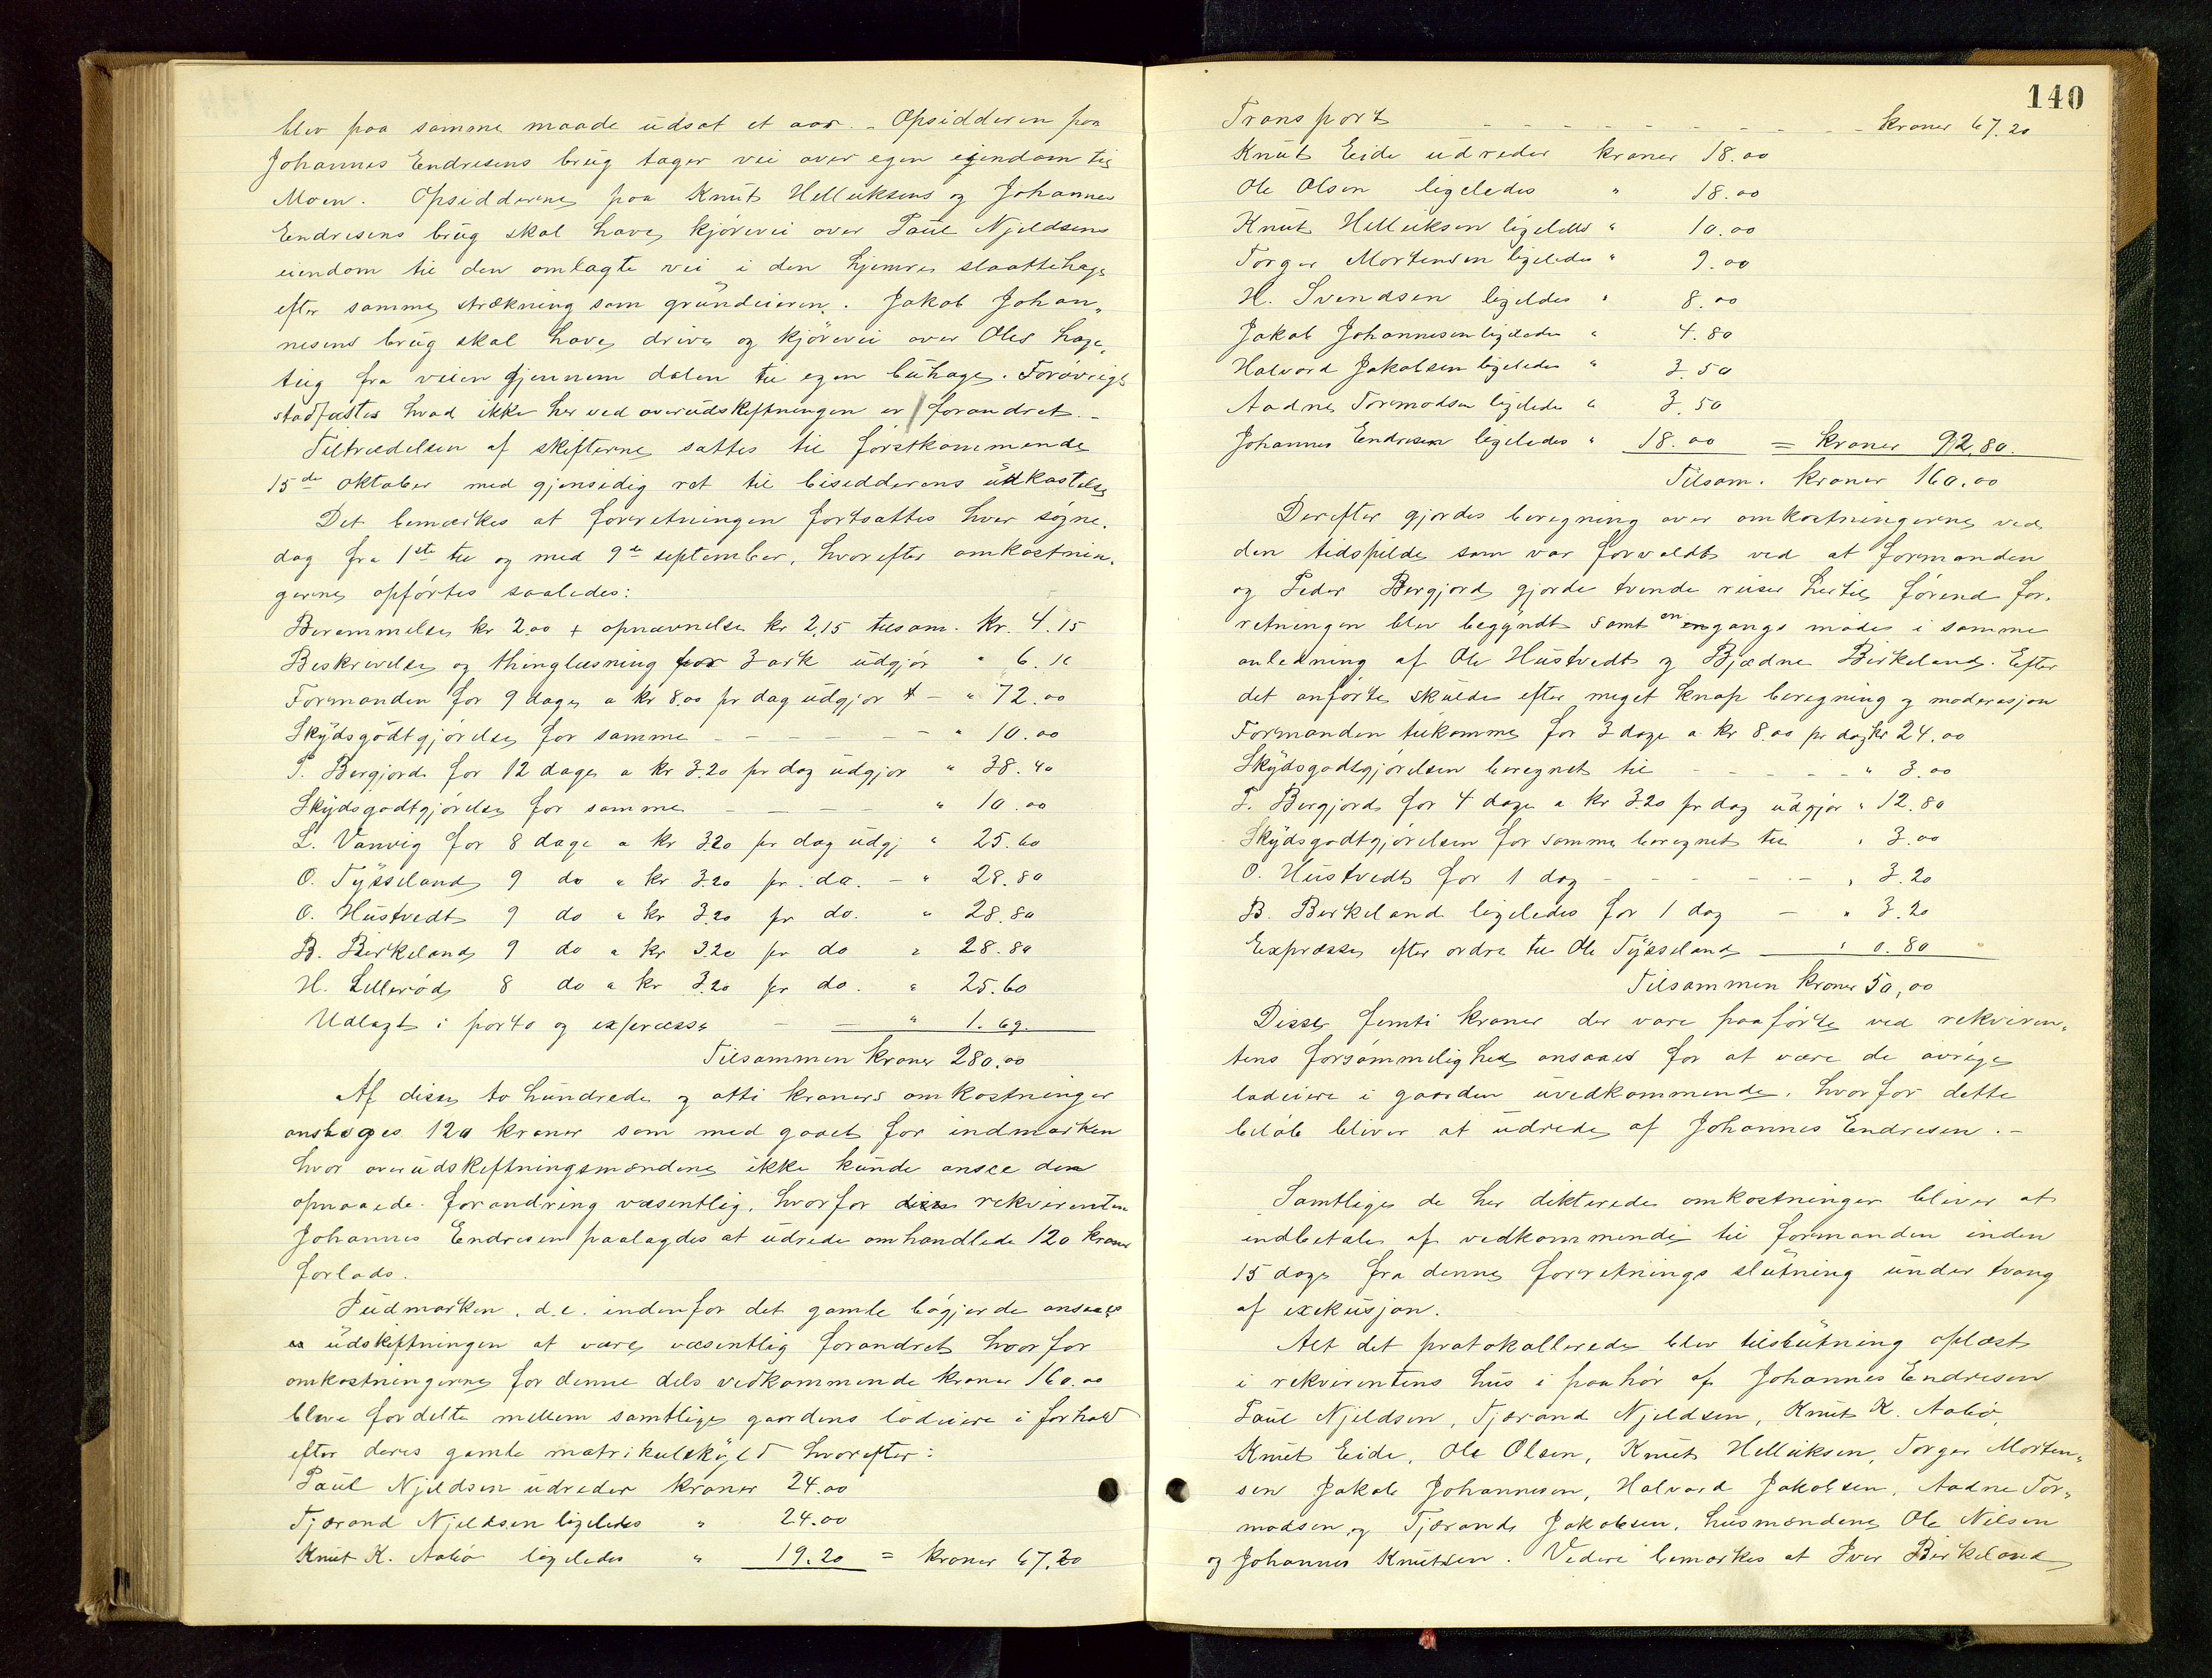 blev paa samme maade udsat et aar. - Opsidderen paa
Johannes Endresens brug tager vei over egen eiendom til
Moen. Opsidderne paa Knut Helliksens og Johannes
Endresens brug skal have kjörevei over Paul Njeldsens
eiendom til den omlagte vei i den hjemre slaattehage
efter samme strækning som grundeieren. Jakob Johan„
nesens brug skal have drive og kjörevei over Oles hage„
teig fra veien gjennem dalen til egen buhage. Forövrigt
stadfæstes hvad ikke her ved overudskiftningen er forandret. -
Tiltrædelsen af skifterne sattes til förstkommende
15de oktober med gjensidig ret til bisidderens udkastelse
Det bemærkes at forretningen fortsattes hver sögne„
dag fra 1ste til og med 9de september, hvorefter omkostnin„
gerne opförtes saaledes:
Berammelse kr 2.00 + opnævnelse kr 2,15 tilsam. Kr. 4.15
Beskrivelse og thinglæsning for 3 ark udgjör " 6.16
Formanden for 9 dage a kr 8.00 pr dag udgjör - " 72.00
Skydsgodtgjörelse for samme - - - - - - " 10.00
P. Bergjord for 12 dage a kr 3.20 pr dag udgjör " 38.40
Skydsgodtgjörelse for samme - - - " 10.00
L. Vanvig for 8 dage a kr 3.20 pr dag udgj " 25.60
O. Tysseland 9 do a kr 3.20 pr. do. - " 28.80
O. Hustvedt 9 do a kr 3.20 pr do. " 28.80
B. Birkeland 9 do a kr 3.20 pr do " 28.80
H. Lilleröd 8 do a kr 3.20 pr do. " 25.60
Udlagt i porto og expresse - - " 1.69.
Tilsammen kroner 280.00
Af disse to hundrede og otti kroners omkostninger
ansloges 120 kroner som med gaaet for indmarken
hvor overudskiftningsmændene ikke kunde ansee den
opnaaede forandring væsentlig, hvorfor rekvirenten
Johannes Endresen paalagdes at udrede omhandlede 120 kroner
forlods.
Indmarken, d.e. indenfor det gamle bögjerde ansaaes
udskiftningen at være væsentlig forandret hvorfor
omkostningerne for denne dels vedkommende kroner 160.00
bleve fordelte mellem samtlige gaardens lodeiere i forhold
efter deres gamle matrikulskyld hvorefter:
Paul Njeldsen udreder kroner 24.00
Tjærand Njeldsen ligeledes " 24.00
Knut K. Aabö ligeledes " 19.20 = kroner 67.20
140
Transport - - - - - - - - - - kroner 67.20
Knut Eide udreder kroner 18.00
Ole Olsen ligeledes " 18.00
Knut Helliksen ligeledes " 10.00
Torger Mortensen ligeledes " 9.00
H. Svendsen ligeledes " 8.00
Jakob Johannesen ligeledes " 4.80
Halvord Jakobsen ligeledes " 3.50
Aadne Tormodsen ligeledes " 3.50
Johannes Endresen ligeledes " 18.00 = kroner 92,80.
Tilsam. kroner 160.00
Derefter gjordes beregning over omkostningerne ved
den tidspilde som var forvoldt ved at formanden
og Peder Bergjord gjorde tvende reiser hertil förend for„
retningen blev begyndt samt en gangs möde i samme
anledning af Ole Hustvedt og Bjædne Birkeland. Efter
det anförte skulde efter meget knap beregning og moderasjon
Formanden tilkomme for 3 dage a kr 8.00 pr dag kr 24.00
Skydsgodtgjörelsen beregnet til - - - - " 3.00
P. Bergjord for 4 dage a kr 3.20 pr dag udgjör " 12.80
Skydsgodtgjörelsen for samme beregnet til " 3.00
O. Hustvedt for 1 dag - - - - - " 3.20
B. Birkeland ligeledes for 1 dag - " 3.20
Expresse efter ordre til Ole Tysseland " 0.80
Tilsammen kroner 50,00
Disse femti kroner der vare paaförte ved rekviren„
tens forsömmelighed ansaaes for at være de övrige
lodeiere i gaarden uvedkommende, hvorfor dette
belöb bliver at udrede af Johannes Endresen. -
Samtlige de her dikterede omkostninger bliver at
indbetale af vedkommende til formanden inden
15 dage fra denne forretnings slutning under tvang
af exekusjon.
Alt det protokollerede blev tilslutning oplæst
i rekvirentens hus i paahör af Johannes Endresen
Paul Njeldsen, Tjærand Njeldsen, Knut K. Aabö,
Knut Eide, Ole Olsen, Knut Helliksen, Torger Morten„
sen Jakob Johannesen, Halvord Jakobsen, Aadne Tor„
modsen og Tjærand Jakobsen, husmændene Ole Nilsen
og Johannes Knutsen. Videre bemærkes at Iver Birkeland